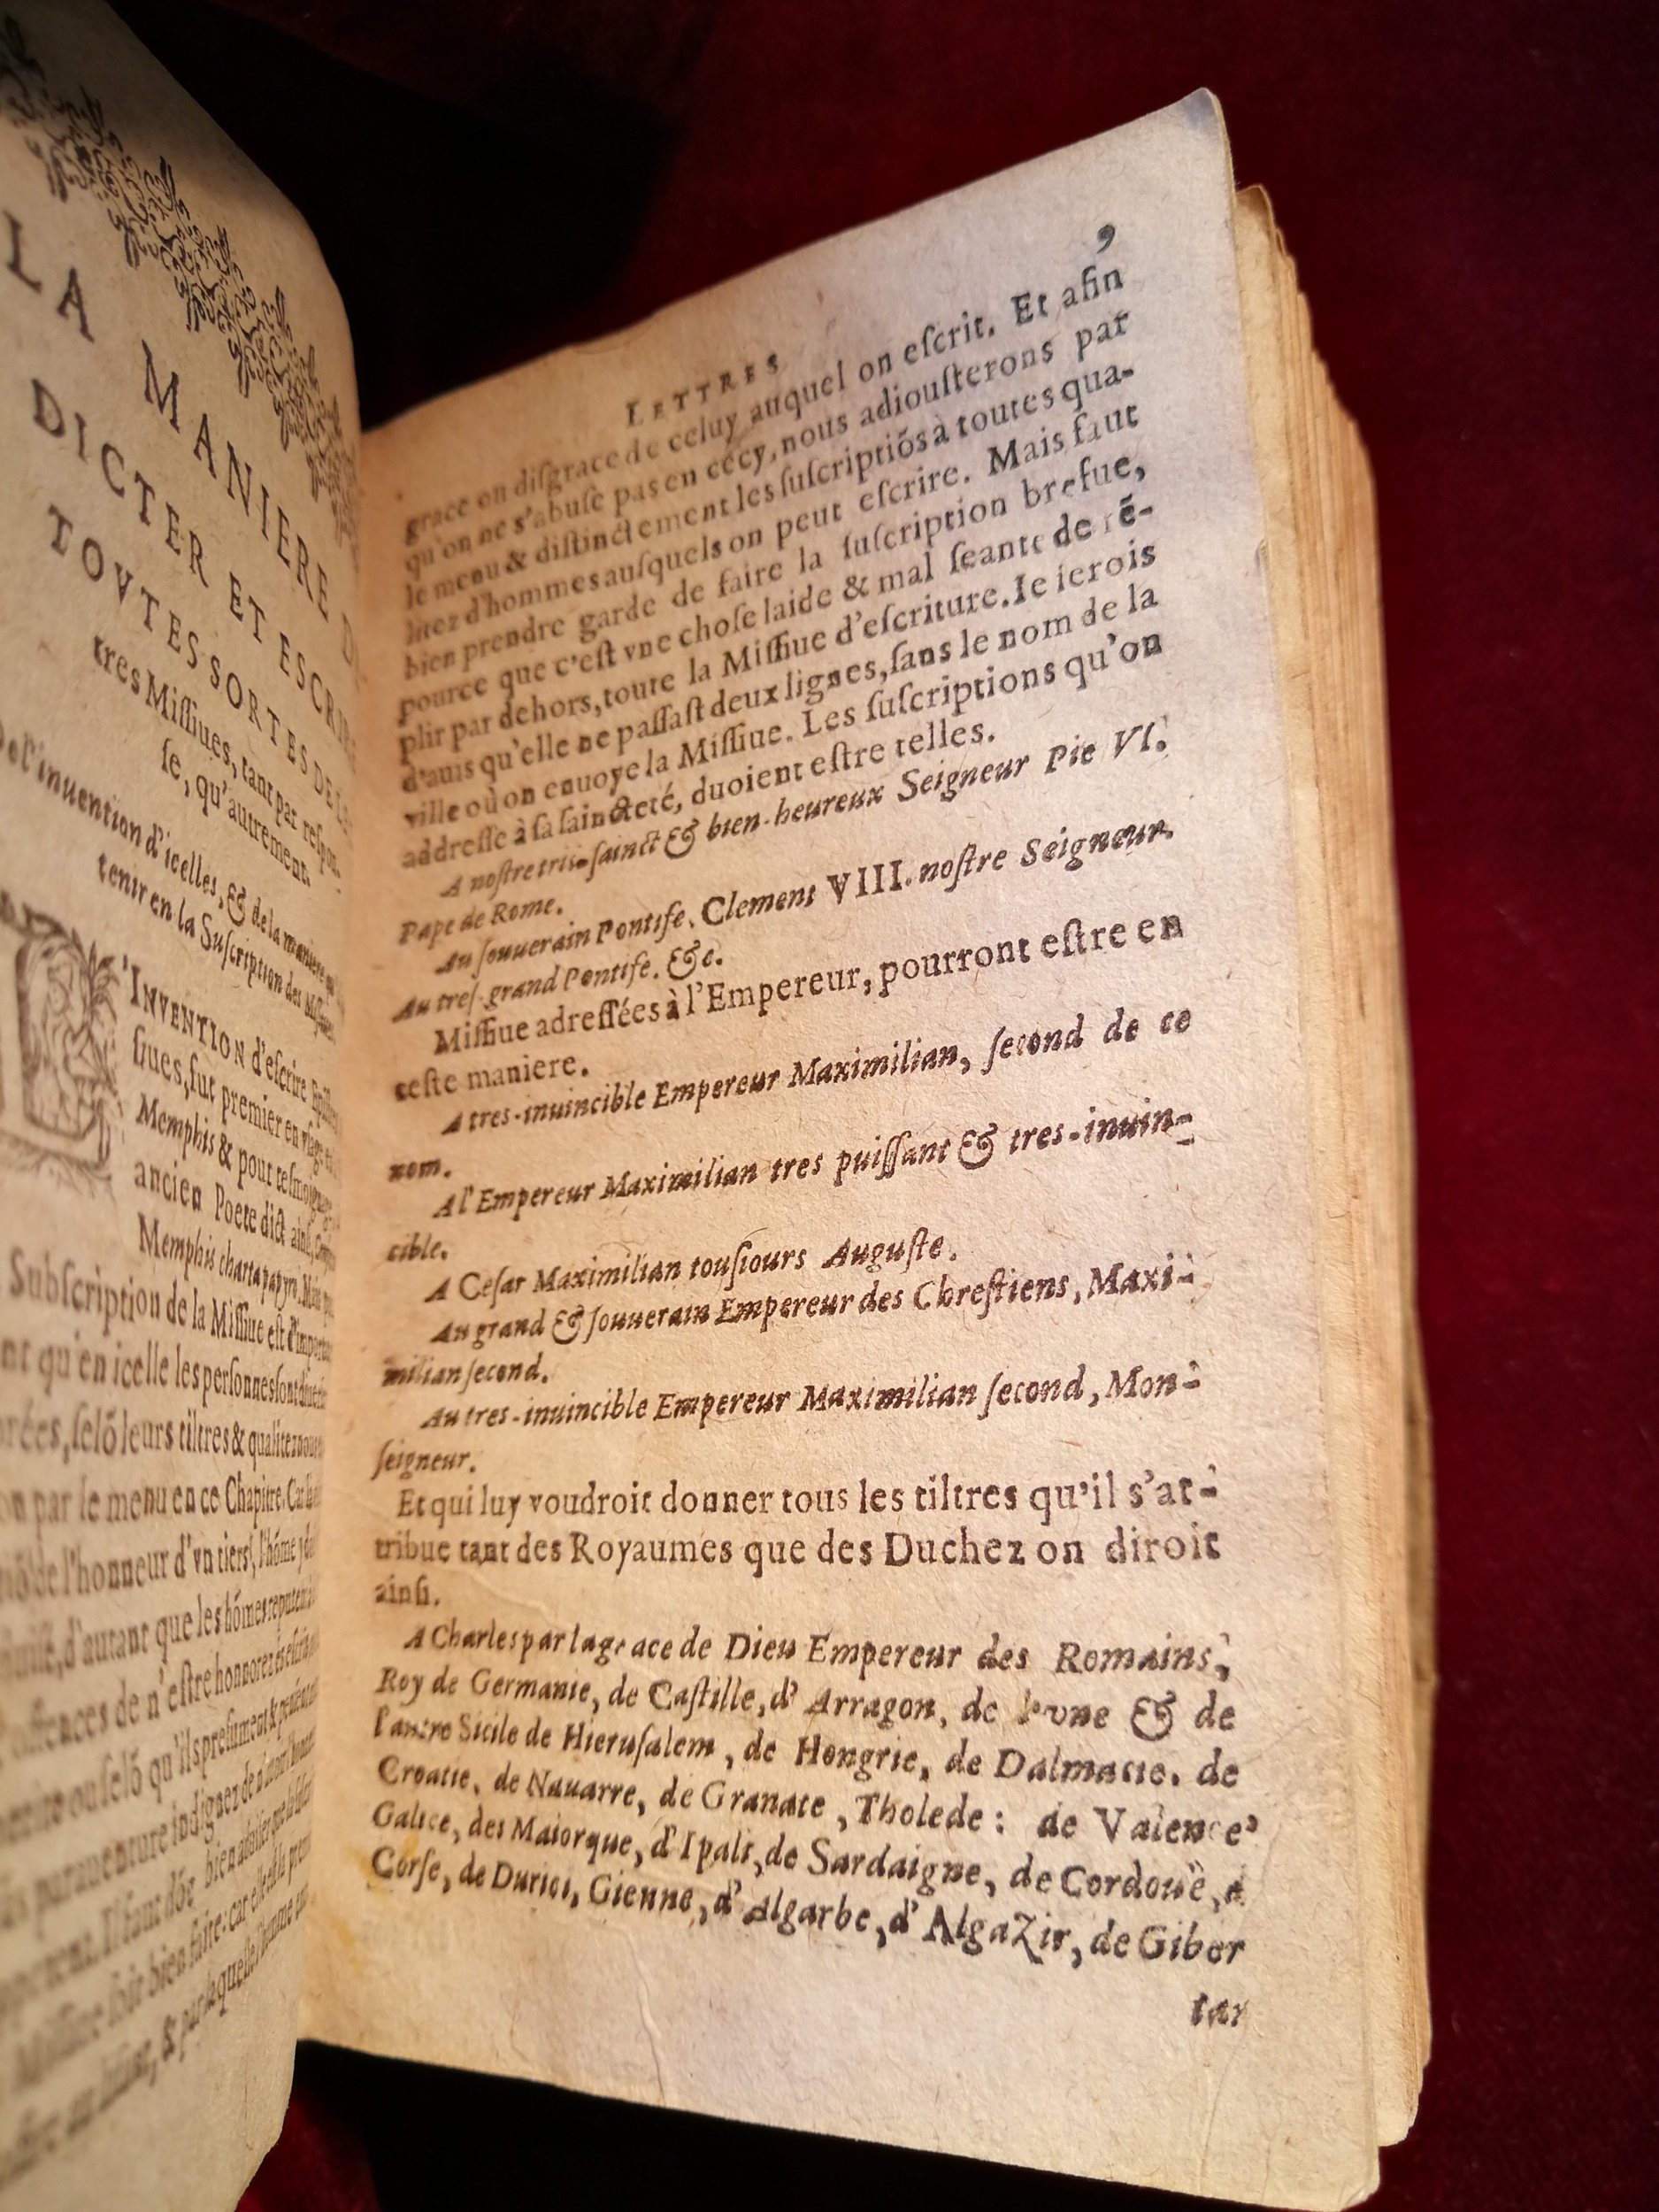 LA MANIERE
DICTER ET ESCRI
TOVTES SORTES DE
tres Missiues, tant par respon-
se, qu'autrement.
De l'inuention d'icelles, & de la maniere
tenir en la Suscription des Missiues
'INVENTION d'escrire
siues, fut premier en vsage
Memphis & pour tesmoignage
ancien Poete dict ainsi,
Memphis charta papyro. Mais
Subscription de la Missiue est d'importan
nt qu'en icelle les personnes sont
rées, selõ leurs tiltres & qualitez
on par le menu en ce Chapitre. Car
de l'honneur d'vn tiers, l'hõme
d'autant que les hõmes reputent
offences de n'estre honnorez
ou selõ qu'ils presument &
parauenture indignez de
Il faut dõc bien aduiser que la
Missiue soit bien faite: car elle est la
& par laquelle l'homme
LETTRES 9
grace ou disgrace de celuy auquel on escrit. Et afin
qu'on ne s'abuse pas en cecy, nous adiousterons par
le menu & distinctement les suscriptiõs à toutes qua-
litez d'hommes ausquels on peut escrire. Mais faut
bien prendre garde de faire la suscription brefue,
pource que c'est vne chose laide & mal seante de rẽ-
plir par dehors, toute la Missiue d'escriture. Ie serois
d'auis qu'elle ne passast deux lignes, sans le nom de la
ville où on enuoye la Missiue. Les suscriptions qu'on
addresse à sa saincteté, duoient estre telles.
A nostre tris-sainct & bien-heureux Seigneur Pie VI.
Pape de Rome.
Au souuerain Pontife, Clement VIII. nostre Seigneur.
Au tres-grand Pontife. &c.
Missiue adressées à l'Empereur, pourront estre en
ceste maniere.
A tres-inuincible Empereur Maximilian, second de ce
nom.
A l'Empereur Maximilian tres puissant & tres-inuin-
cible.
A Cesar Maximilian tousiours Auguste.
Au grand & souuerain Empereur des Chrestiens, Maxi-
milian second.
Au tres-inuincible Empereur Maximilian second, Mon-
seigneur.
Et qui luy voudroit donner tous les tiltres qu'il s'at-
tribue tant des Royaumes que des Duchez on diroit
ainsi.
A Charles par la grace de Dieu Empereur des Romains,
Roy de Germanie, de Castille, d' Arragon, de l'vne & de
l'autre Sicile de Hierusalem, de Hongrie, de Dalmatie, de
Croatie, de Nauarre, de Granate, Tholede: de Valence,
Galice, des Maiorque, d'Ipali, de Sardaigne, de Cordouë, d
Corse, de Durici, Gienne, d' Algarbe, d' AlgaZir, de Giber
tar